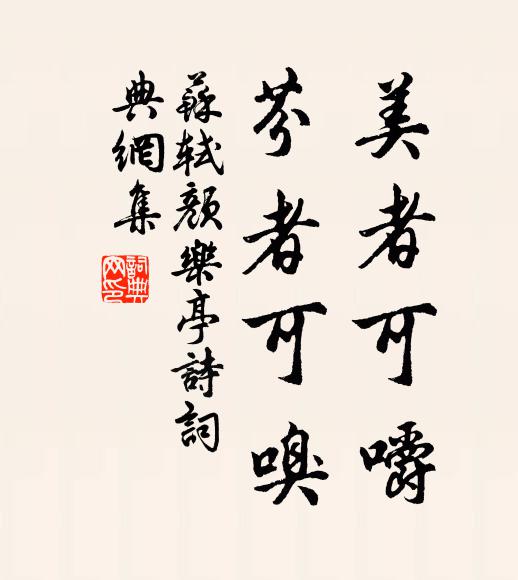 美者可嚼
芬者可嗅
蘇軾顏樂亭詩詞
典網集
詞典網印